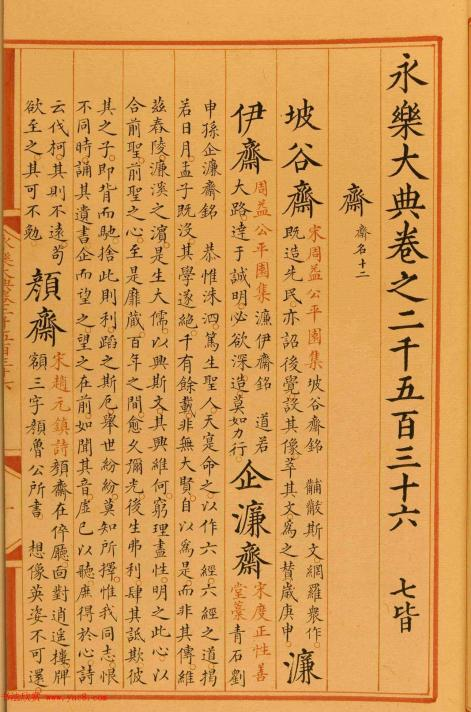 永樂大典卷之二千五百三十六 七皆
齋 齋名十二
坡谷齋 宋周益公平園集坡谷齋銘 黼黻斯文網羅衆作
既造先民亦詔後覺設其像萃其文為之贊歲庚申 濂
伊齋 周益公平園集濂伊齋銘 道若
大路逹于誠明必欲深造莫如力行 企濂齋 宋度正性善
堂藁青石劉
申孫企濂齋銘 恭惟洙泗篤生聖人天寔命之以作六經六經之道揭
若日月孟子既没其學遂絶千有餘載非無大賢自以為是而非其傳維
兹舂陵濂溪之濵是生大儒以興斯文其興維何窮理盡性明之此心以
合前聖前聖之心至是靡藏百年之間愈久彌光後生弗利肆其詆欺彼
其之子即背而馳捨此則利蹈之斯厄舉世紛紛莫知所擇惟我同志恨
不同時誦其遺書企而望之望之在前如聞其音虚已以聽庶得於心詩
云伐柯其則不遠苟
欲至之其可不勉 顔齋 宋趙元鎮詩顔齋在倅廳面對逍遥樓牌
額三字顔魯公所書 想像英姿不可還
永樂大典卷二千五百三十六